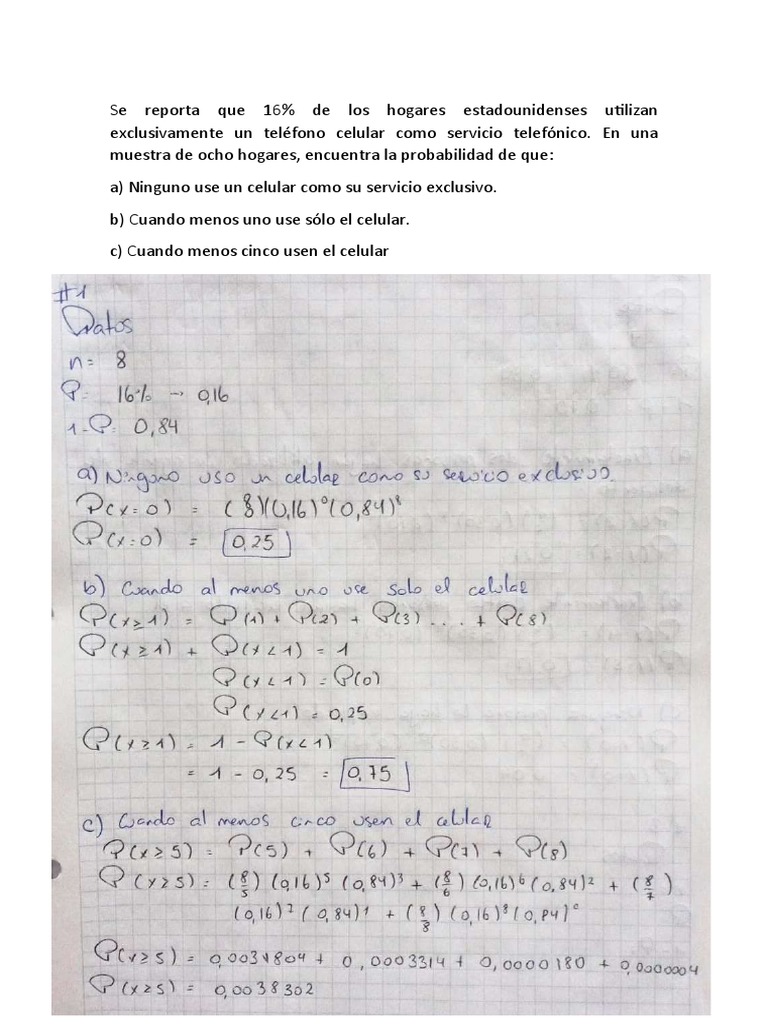 Se reporta que 16% de los hogares estadounidenses utilizan
exclusivamente un teléfono celular como servicio telefónico. En una
muestra de ocho hogares, encuentra la probabilidad de que:
a) Ninguno use un celular como su servicio exclusivo.
b) Cuando menos uno use sólo el celular.
c) Cuando menos cinco usen el celular
#1
Datos
n = 8
P = 16% → 0,16
1-P = 0,84
a) Ninguno uso un celular como su servicio exclusivo.
P(x=0) = (8 0)(0,16)⁰(0,84)⁸
P(x=0) = 0,25
b) Cuando al menos uno use solo el celular
P(x≥1) = P(1) + P(2) + P(3) . . . . + P(8)
P(x≥1) + P(x<1) = 1
P(x<1) = P(0)
P(x<1) = 0,25
P(x≥1) = 1 - P(x<1)
= 1 - 0,25 = 0,75
c) Cuando al menos cinco usen el celular
P(x≥5) = P(5) + P(6) + P(7) + P(8)
P(x≥5) = (8/5) (0,16)⁵ (0,84)³ + (8/6) (0,16)⁶ (0,84)² + (8/7)
(0,16)² (0,84)¹ + (8/8) (0,16)⁸ (0,84)⁰
P(x≥5) = 0,0034804 + 0,0003314 + 0,0000180 + 0,0000004
P(x≥5) = 0,0038302